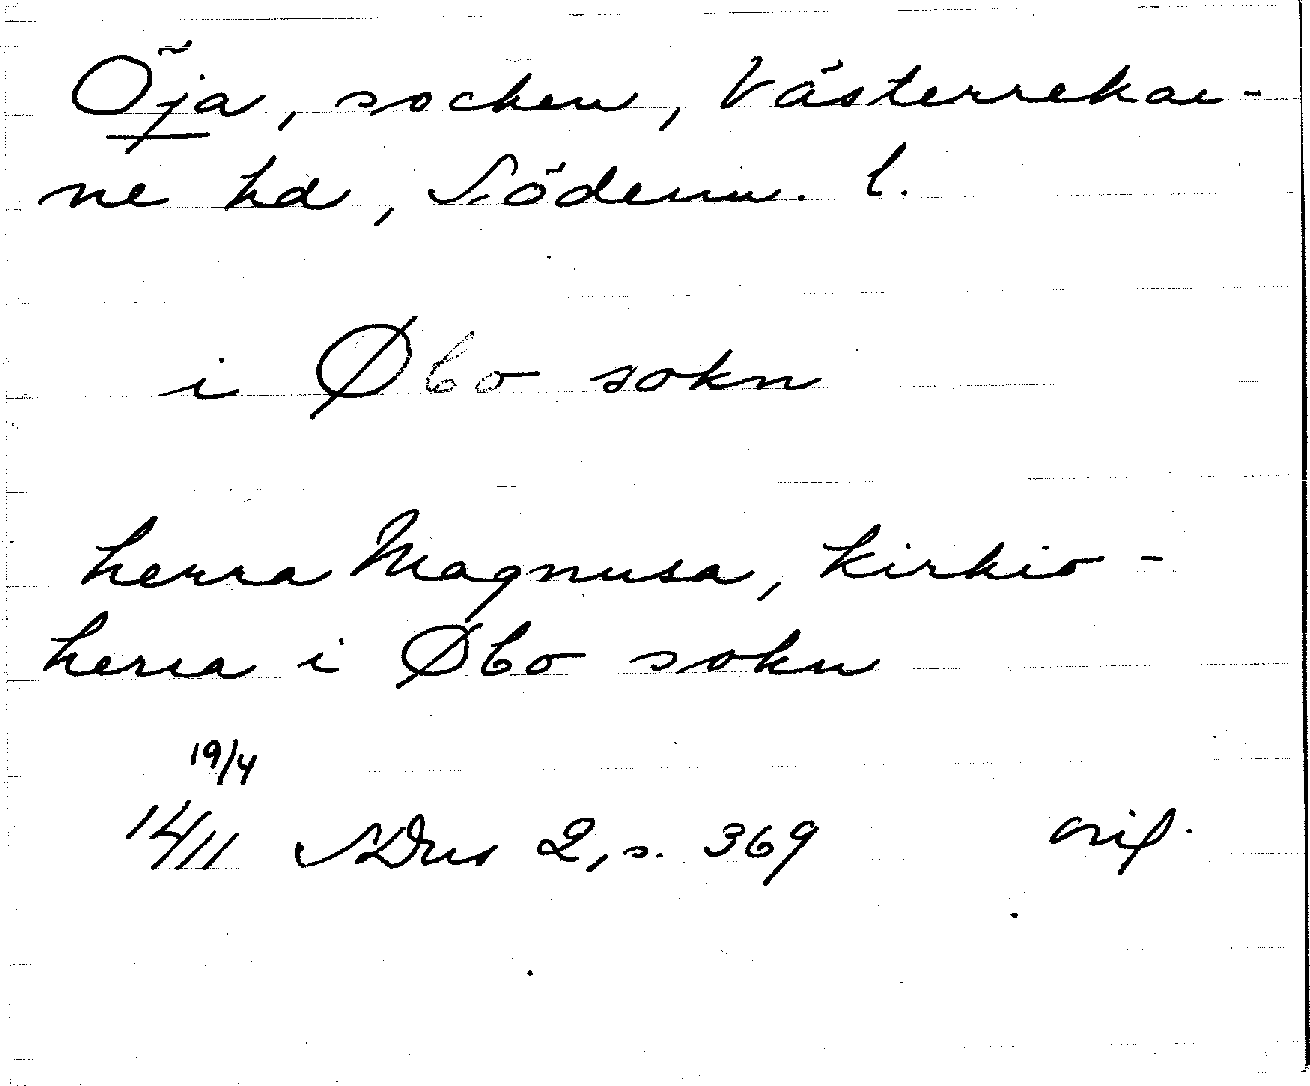 Öja, socken, Västerrekar-
ne hd, Söderm. l.
i Øbo sokn
herra Magnusa, kirkio-
herra i Øbo sokn
19/4
14/11 SDns 2, s. 369 orig.